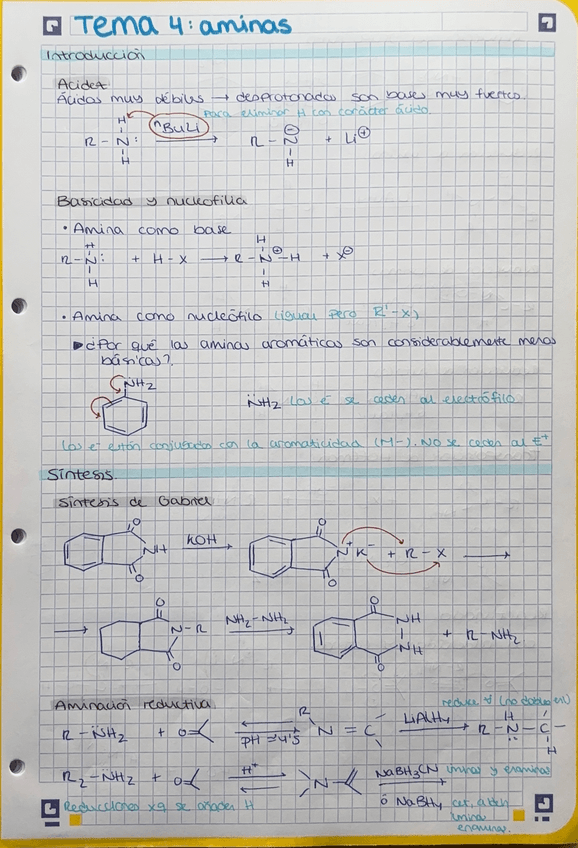 Tema 4: aminas
Introducción
Acidez
Ácidos muy débiles → desprotonados son bases muy fuertes
Para eliminar H con carácter ácido.
H
nBuLi
R - N: → R - N⊖ + Li⊕
H H
Basicidad y nucleofilia
• Amina como base
H H
R - N: + H - X → R - N⊕ - H + X⊖
H H
• Amina como nucleófilo (igual pero R' - X)
▶ ¿Por qué las aminas aromáticas son considerablemente menos
básicas?
NH2
N̈H2 Los e⁻ se ceden al electrófilo
Los e⁻ están conjugados con la aromaticidad (M-). No se ceden al E⁺
Síntesis
Síntesis de Gabriel
O O
NH KOH → N K⁺ ⁻ + R - X →
O O
O O
→ N - R NH2-NH2 → NH NH + R - NH2
O O
Aminación reductiva
reduce ∀ (no doble en)
R - N̈H2 + O= ⇌ pH = 4'5 R N = C LiAlH4 → R - N - C -
H H
R2 - N̈H2 + O= H⁺ ⇌ N NaBH3CN iminas y enaminas
Reducciones xq se añaden H
ó NaBH4 cet, aldeh
iminas
enaminas.